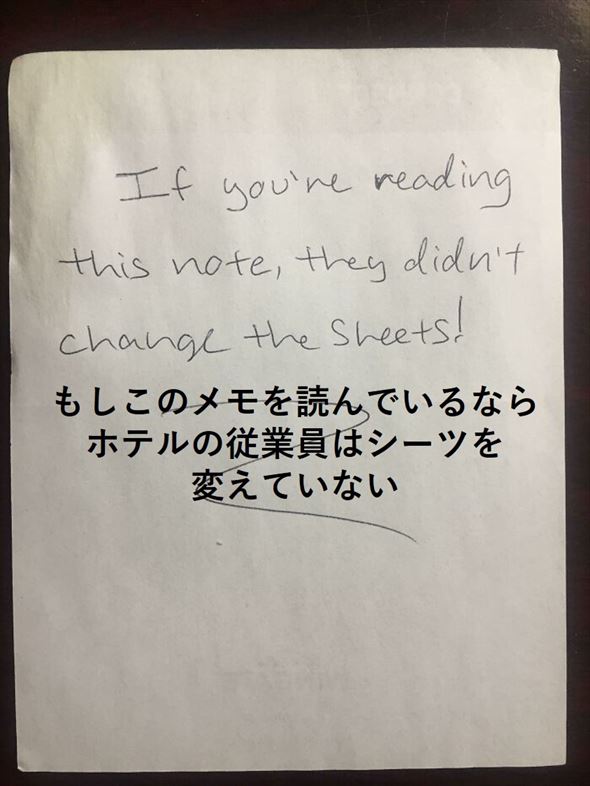 If you're reading
this note, they didn't
change the Sheets!
もしこのメモを読んでいるなら
ホテルの従業員はシーツを
変えていない